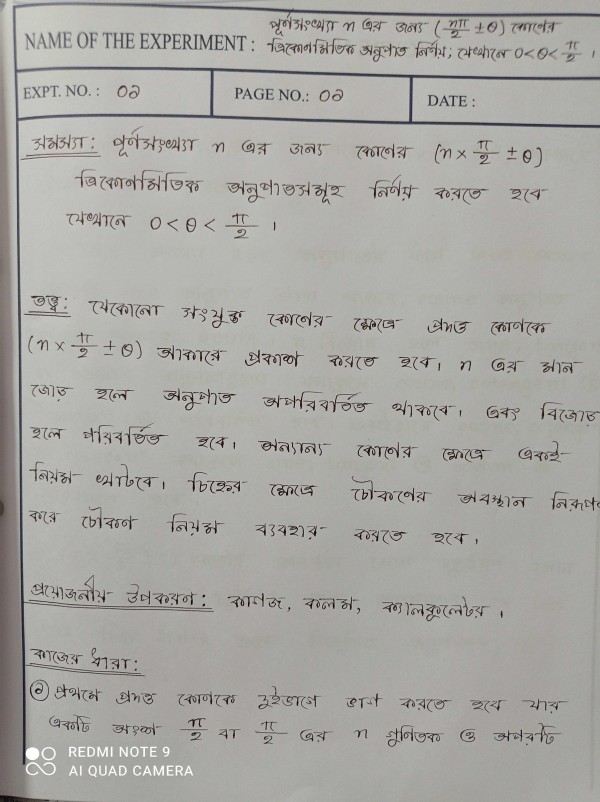 NAME OF THE EXPERIMENT : পূর্ণসংখ্যা n এর জন্য (nπ/2 ± θ) কোণের
ত্রিকোণমিতিক অনুপাত নির্ণয়; যেখানে 0 < θ < π/2 ।
EXPT. NO. : 02 PAGE NO.: 02 DATE :
সমস্যা: পূর্ণসংখ্যা n এর জন্য কোণের (n × π/2 ± θ)
ত্রিকোণমিতিক অনুপাতসমূহ নির্ণয় করতে হবে
যেখানে 0 < θ < π/2 ।
তত্ত্ব: যেকোনো সংযুক্ত কোণের ক্ষেত্রে প্রদত্ত কোণকে
(n × π/2 ± θ) আকারে প্রকাশ করতে হবে। n এর মান
জোড় হলে অনুপাত অপরিবর্তিত থাকবে। এবং বিজোড়
হলে পরিবর্তিত হবে। অন্যান্য কোণের ক্ষেত্রে একই
নিয়ম খাটবে। চিহ্নের ক্ষেত্রে চৌকণের অবস্থান নিরূপণ
করে চৌকণ নিয়ম ব্যবহার করতে হবে।
প্রয়োজনীয় উপকরণ: কাগজ, কলম, ক্যালকুলেটর ।
কাজের ধারা:
১ প্রথমে প্রদত্ত কোণকে দুইভাগে ভাগ করতে হবে যার
একটি অংশ π/2 বা π/2 এর n গুনিতক ও অপরটি
REDMI NOTE 9
AI QUAD CAMERA